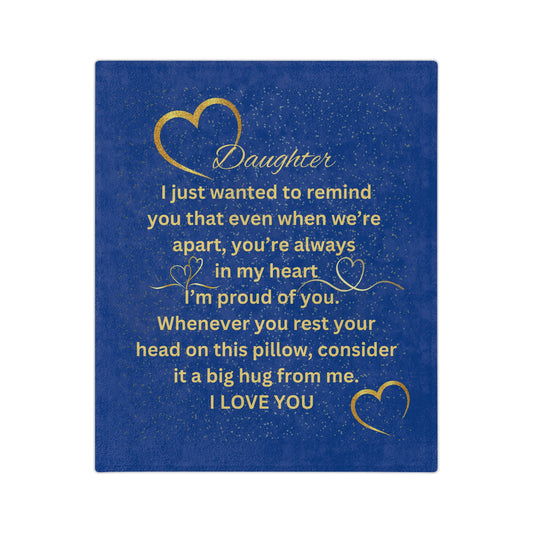 Daughter
I just wanted to remind
you that even when we’re
apart, you’re always
in my heart
I’m proud of you.
Whenever you rest your
head on this pillow, consider
it a big hug from me.
I LOVE YOU